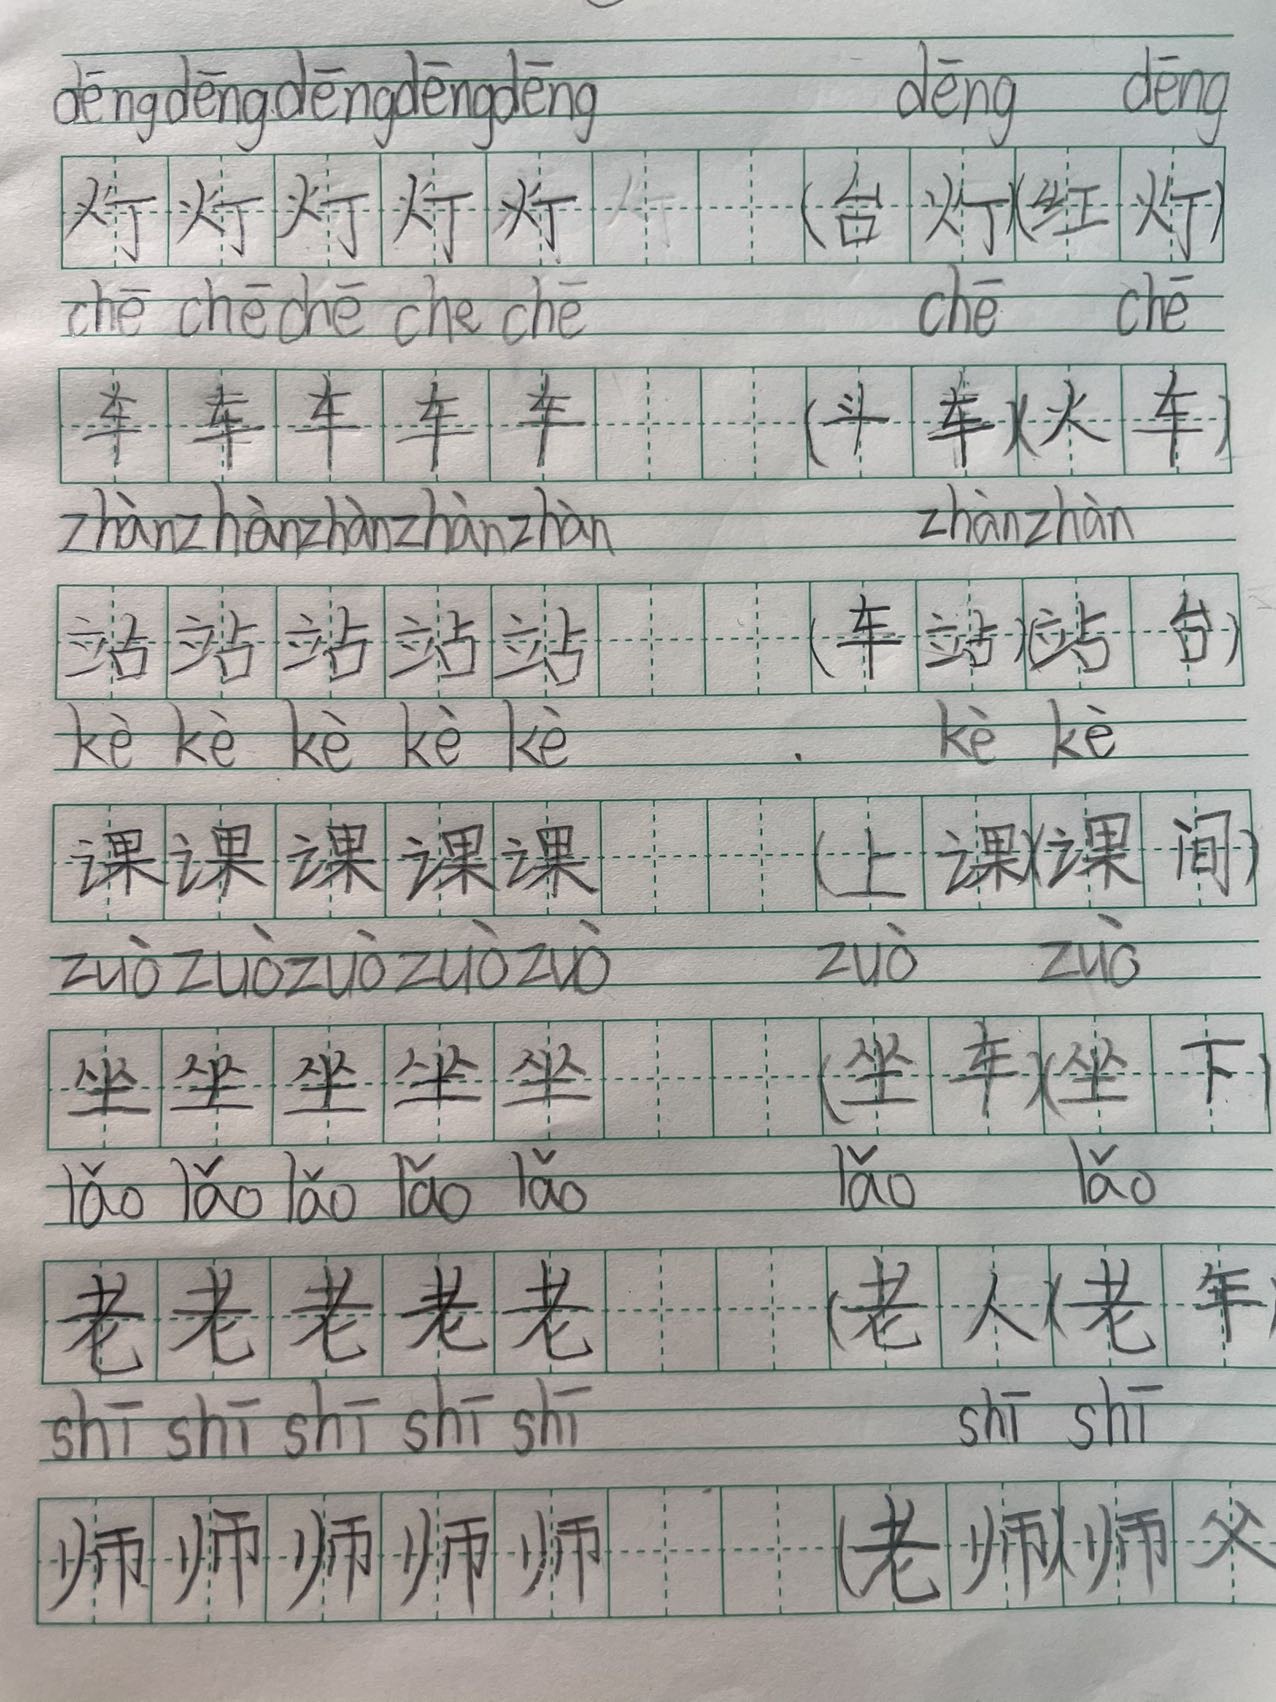 dēng dēng dēng dēng dēng dēng dēng
灯 灯 灯 灯 灯 灯 (台灯)(红灯)
chē chē chē che chē chē chē
车 车 车 车 车 (斗车)(火车)
zhàn zhàn zhàn zhàn zhàn zhàn zhàn
站 站 站 站 站 (车站)(站台)
kè kè kè kè kè kè kè
课 课 课 课 课 (上课)(课间)
zuò zuò zuò zuò zuò zuò zuò
坐 坐 坐 坐 坐 (坐车)(坐下)
lǎo lǎo lǎo lǎo lǎo lǎo lǎo
老 老 老 老 老 (老人)(老年)
shī shī shī shī shī shī shī
师 师 师 师 师 (老师)(师父